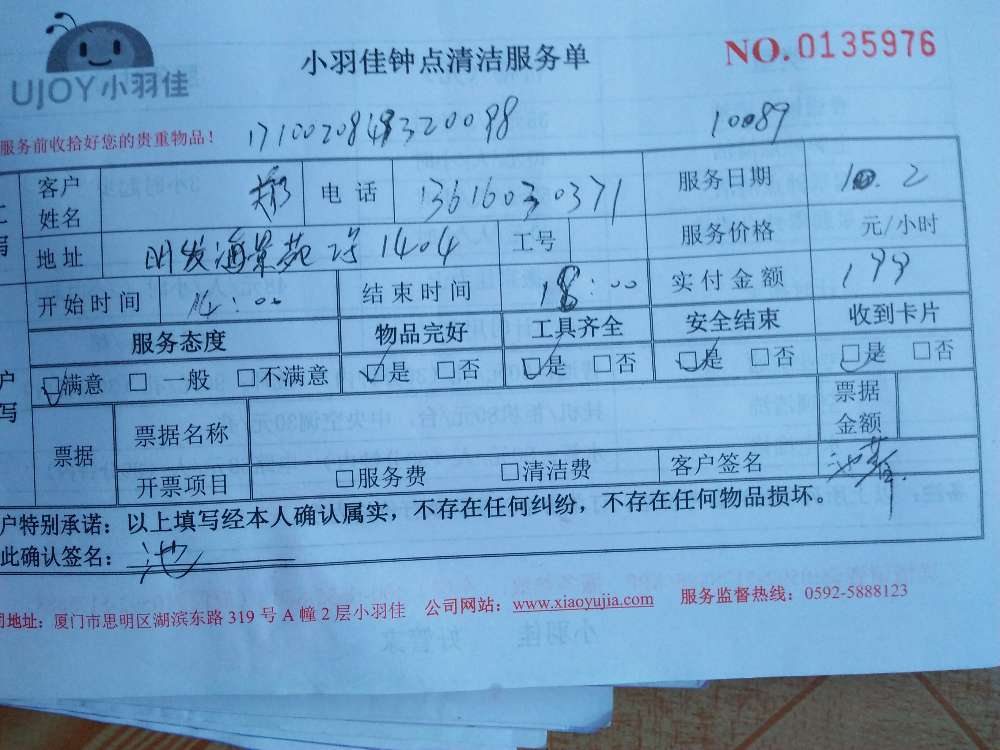 UJOY小羽佳
小羽佳钟点清洁服务单
NO.0135976
服务前收拾好您的贵重物品!
10089
客户姓名 电话 13616030371 服务日期 10.2
地址 明发海景苑 1404 工号 服务价格 元/小时
开始时间 :00 结束时间 18:00 实付金额 199
服务态度 物品完好 工具齐全 安全结束 收到卡片
□满意 □一般 □不满意 □是 □否 □是 □否 □是 □否 □是 □否
票据 票据名称 票据金额
开票项目 □服务费 □清洁费 客户签名
户特别承诺:以上填写经本人确认属实,不存在任何纠纷,不存在任何物品损坏。
此确认签名: 池
地址:厦门市思明区湖滨东路 319 号 A 幢 2 层小羽佳 公司网站:www.xiaoyujia.com 服务监督热线:0592-5888123